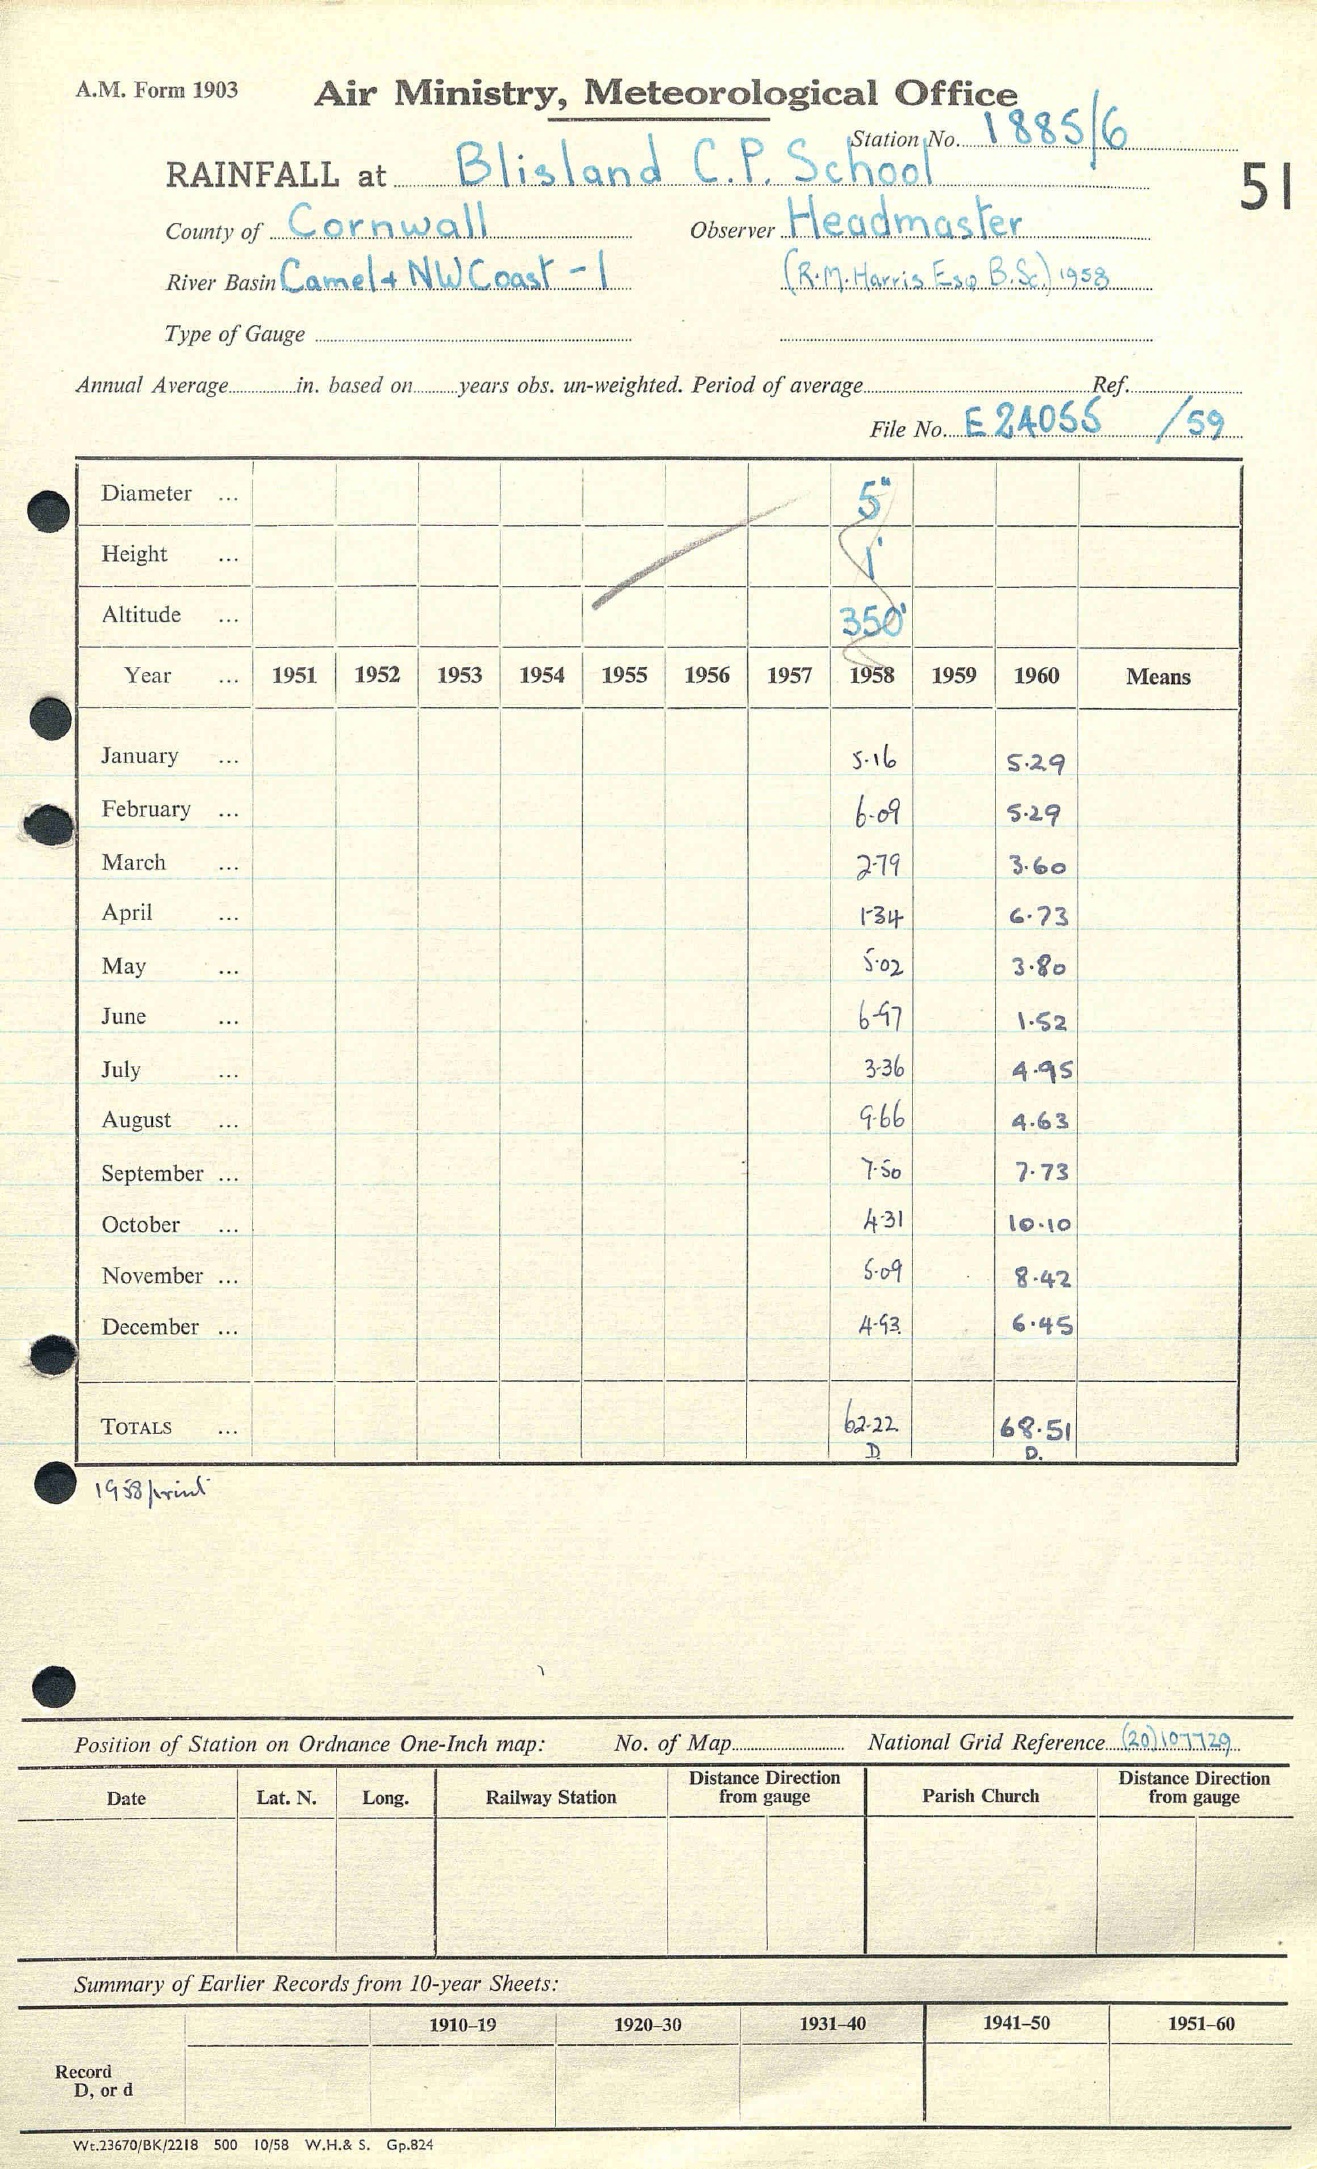 A.M. Form 1903 Air Ministry, Meteorological Office
Station No. 1885/6
RAINFALL at Blisland C.P. School
51
County of Cornwall Observer Headmaster
River Basin Camel + NW Coast - 1 (R.M. Harris Esq B.Sc.) 1958
Type of Gauge
Annual Average in. based on years obs. un-weighted. Period of average Ref.
File No. E 24055 /59
Diameter ... 5"
Height ... 1'
Altitude ... 350'
Year ... 1951 1952 1953 1954 1955 1956 1957 1958 1959 1960 Means
January ... 5.16 5.29
February ... 6.09 5.29
March ... 2.79 3.60
April ... 1.34 6.73
May ... 5.02 3.80
June ... 6.97 1.52
July ... 3.36 4.95
August ... 9.66 4.63
September ... 7.50 7.73
October ... 4.31 10.10
November ... 5.09 8.42
December ... 4.93 6.45
TOTALS ... 62.22 68.51
D. D.
1958 print
Position of Station on Ordnance One-Inch map: No. of Map National Grid Reference (20)107729
Date Lat. N. Long. Railway Station Distance Direction from gauge Parish Church Distance Direction from gauge
Summary of Earlier Records from 10-year Sheets:
1910–19 1920–30 1931–40 1941–50 1951–60
Record
D, or d
Wt.23670/BK/2218 500 10/58 W.H.& S. Gp.824